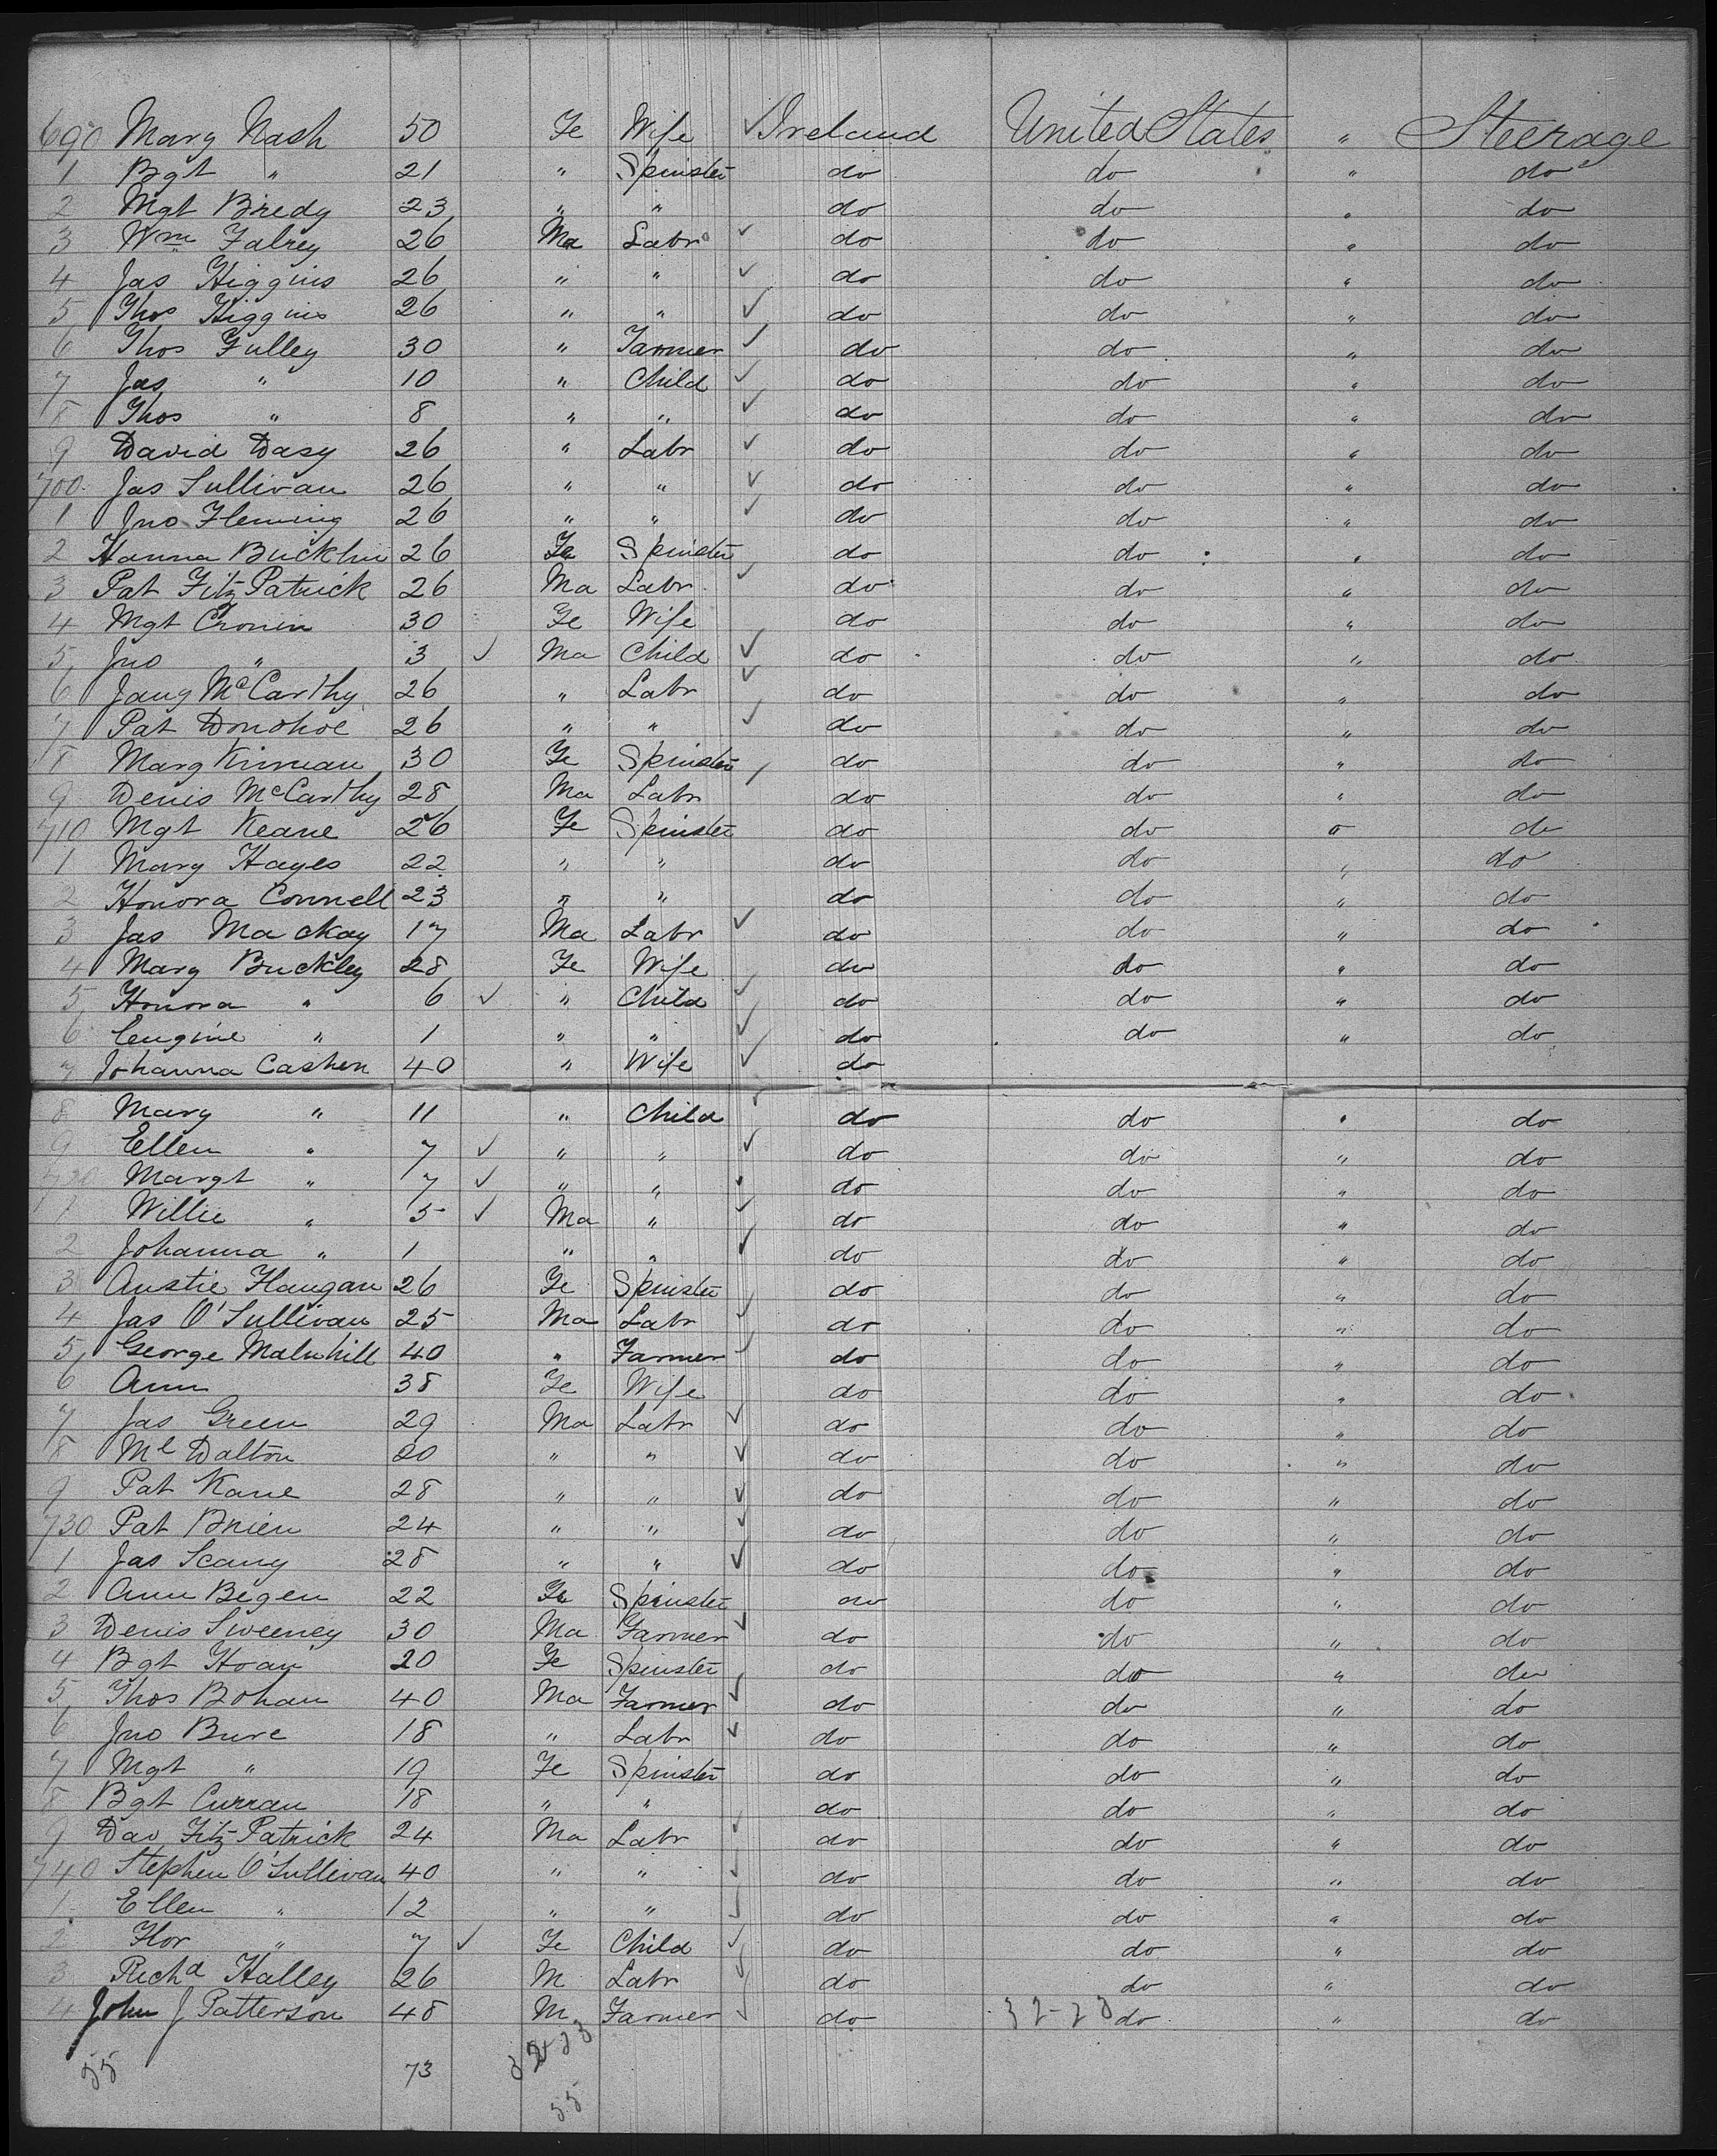 690 Mary Nash 50 Fe Wife ✓ Ireland United States " Steerage
1 Bgt " 21 " Spinster do do " do
2 Mgt Bredy 23 " " do do " do
3 Wm Falvey 26 Ma Labr ✓ do do " do
4 Jas Higgins 26 " " ✓ do do " do
5 Thos Higgins 26 " " ✓ do do " do
6 Thos Fulley 30 " Farmer ✓ do do " do
7 Jas " 10 " Child ✓ do do " do
8 Thos " 8 " " ✓ do do " do
9 David Dasy 26 " Labr ✓ do do " do
700 Jas Sullivan 26 " " ✓ do do " do
1 Jno Fleming 26 " " ✓ do do " do
2 Hanna 26 Fe Spinster do do " do
3 Pat FitzPatrick 26 Ma Labr ✓ do do " do
4 Mgt Cronin 30 Fe Wife do do " do
5 Jno " 3 ✓ Ma Child ✓ do do " do
6 McCarthy 26 " Labr ✓ do do " do
7 Pat Donohoe 26 " " ✓ do do " do
8 Mary Kinnean 30 Fe Spinster do do " do
9 Denis McCarthy 28 Ma Labr ✓ do do " do
710 Mgt Keane 26 Fe Spinster do do " do
1 Mary Hayes 22 " " do do " do
2 Honora Connell 23 " " do do " do
3 Jas Mackay 17 Ma Labr ✓ do do " do
4 Mary Buckley 28 Fe Wife do do " do
5 Honora " 6 ✓ " Child ✓ do do " do
6 Eugine " 1 " " ✓ do do " do
7 Johanna Cashen 40 " Wife ✓ do
8 Mary " 11 " Child ✓ do do " do
9 Ellen " 7 ✓ " " ✓ do do " do
720 Margt " 7 ✓ " " ✓ do do " do
1 Willie " 5 ✓ Ma " ✓ do do " do
2 Johanna " 1 " " ✓ do do " do
3 Austie Flangan 26 Fe Spinster do do " do
4 Jas O'Sullivan 25 Ma Labr ✓ do do " do
5 George 40 " Farmer ✓ do do " do
6 Ann 38 Fe Wife do do " do
7 Jas Green 29 Ma Labr ✓ do do " do
8 Ml Dalton 20 " " ✓ do do " do
9 Pat Kane 28 " " ✓ do do " do
730 Pat Brien 24 " " ✓ do do " do
1 Jas Scany 28 " " ✓ do do " do
2 Ann Begen 22 Fe Spinster do do " do
3 Denis Sweeney 30 Ma Farmer ✓ do do " do
4 Bgt Hoay 20 Fe Spinster do do " do
5 Thos Bohan 40 Ma Farmer ✓ do do " do
6 Jno Bure 18 " Labr ✓ do do " do
7 Mgt " 19 Fe Spinster do do " do
8 Bgt Curran 18 " " do do " do
9 Dav FitzPatrick 24 Ma Labr ✓ do do " do
740 Stephen O'Sullivan 40 " " ✓ do do " do
1 Ellen " 12 " " ✓ do do " do
2 Flor " 7 ✓ Fe Child ✓ do do " do
3 Richd Halley 26 M Labr ✓ do do " do
4 John J Patterson 48 M Farmer ✓ do 32-23 do " do
55 73 32-23
55